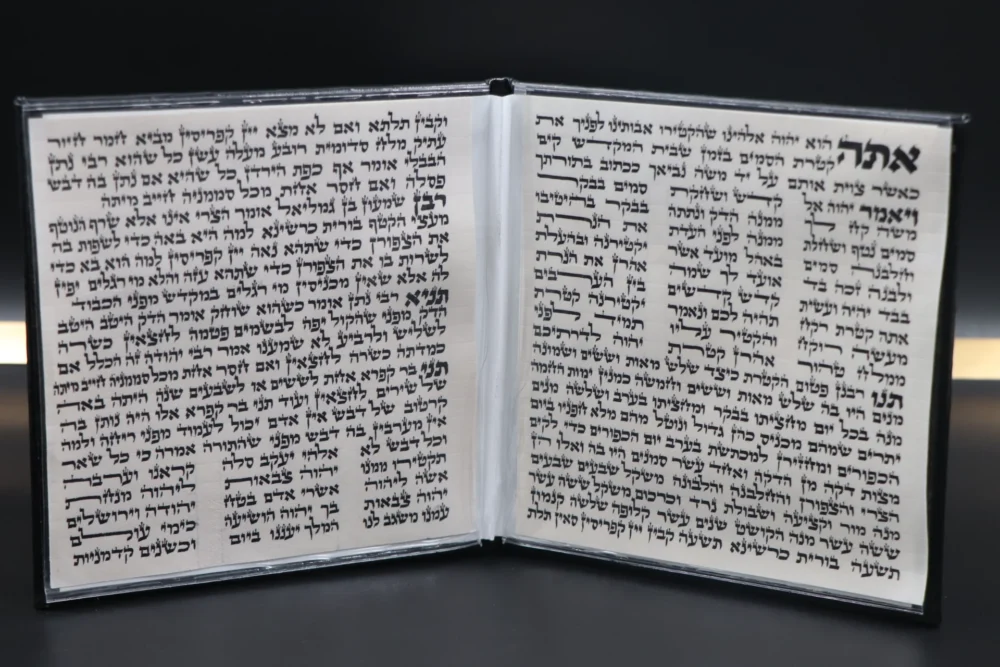 אתה הוא יהוה אלהינו שהקטירו אבותינו לפניך את
קטרת הסמים בזמן שבית המקדש קים
כאשר צוית אותם על יד משה נביאך ככתוב בתורתך
ויאמר יהוה אל
משה קח לך
סמים נטף ושחלת
וחלבנה סמים
ולבנה זכה בד
בבד יהיה ועשית
אתה קטרת רקח
מעשה רוקח
ממלח טהור
קדש ושחקת
ממנה הדק ונתתה
ממנה לפני העדת
באהל מועד אשר
אועד לך שמה
קדש קדשים
תהיה לכם ונאמר
והקטיר עליו
אהרן קטרת
סמים בבקר
בבקר בהיטיבו
את הנרת
יקטירנה ובהעלת
אהרן את הנרת
בין הערבים
יקטירנה קטרת
תמיד לפני
יהוה לדרתיכם
תנו רבנן פטום הקטרת כיצד שלש מאות וששים ושמונה
מנים היו בה שלש מאות וששים וחמשה כמנין ימות החמה
מנה בכל יום מחציתו בבקר ומחציתו בערב ושלשה מנים
יתרים שמהם מכניס כהן גדול ונוטל מהם מלא חפניו ביום
הכפורים ומחזירן למכתשת בערב יום הכפורים כדי לקים
מצות דקה מן הדקה ואחד עשר סמנים היו בה ואלו הן
הצרי והצפורן והחלבנה והלבונה משקל שבעים שבעים
מנה מור וקציעה ושבולת נרד וכרכום משקל ששה עשר
ששה עשר מנה הקושט שנים עשר קלופה שלשה קנמון
תשעה בורית כרשינא תשעה קבין יין קפריסין סאין תלת
וקבין תלתא ואם לא מצא יין קפריסין מביא חמר חיור
עתיק מלח סדומית רובע מעלה עשן כל שהוא רבי נתן
הבבלי אומר אף כפת הירדן כל שהיא אם נתן בה דבש
פסלה ואם חסר אחת מכל סממניה חייב מיתה
רבן שמעון בן גמליאל אומר הצרי אינו אלא שרף הנוטף
מעצי הקטף בורית כרשינא למה היא באה כדי לשפות בה
את הצפורן כדי שתהא נאה יין קפריסין למה הוא בא כדי
לשרות בו את הצפורן כדי שתהא עזה והלא מי רגלים יפין
לה אלא שאין מכניסין מי רגלים במקדש מפני הכבוד
תניא רבי נתן אומר כשהוא שוחק אומר הדק היטב היטב
הדק מפני שהקול יפה לבשמים פטמה לחצאין כשרה
לשליש ולרביע לא שמענו אמר רבי יהודה זה הכלל אם
כמדתה כשרה לחצאין ואם חסר אחת מכל סממניה חייב מיתה
תני בר קפרא אחת לששים או לשבעים שנה היתה באה
של שירים לחצאין ועוד תני בר קפרא אלו היה נותן בה
קרטוב של דבש אין אדם יכול לעמוד מפני ריחה ולמה
אין מערבין בה דבש מפני שהתורה אמרה כי כל שאר
וכל דבש לא
תקטירו ממנו
אשה ליהוה
יהוה צבאות
עמנו משגב לנו
אלהי יעקב סלה
יהוה צבאות
אשרי אדם בטח
בך יהוה הושיעה
המלך יעננו ביום
קראנו וערבה
ליהוה מנחת
יהודה וירושלים
כימי עולם
וכשנים קדמניות